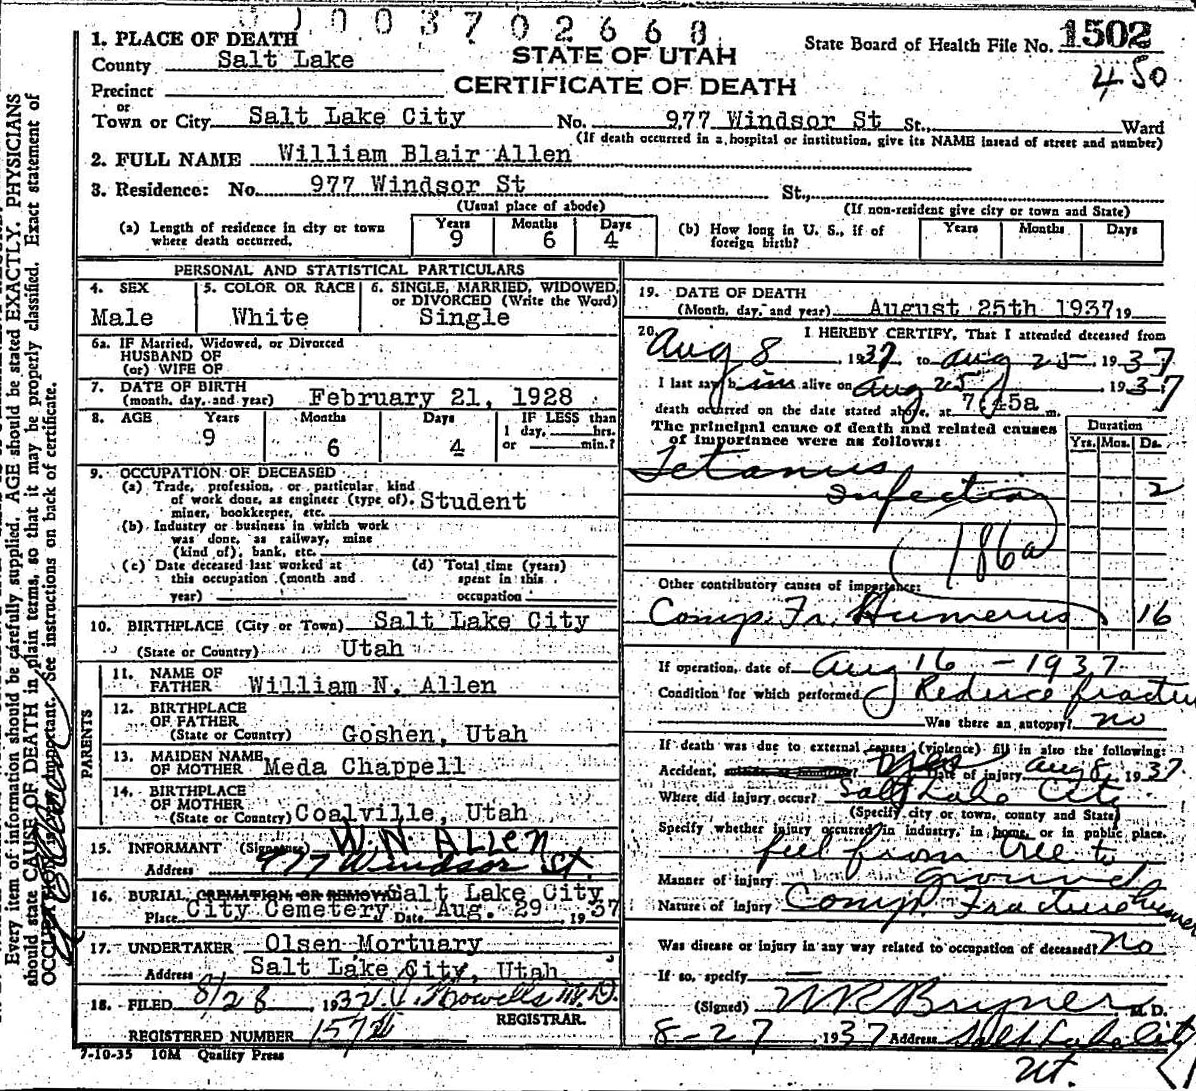 0100370 2668
1. PLACE OF DEATH
County Salt Lake
STATE OF UTAH
CERTIFICATE OF DEATH
State Board of Health File No. 1502
450
Precinct
or
Town or City Salt Lake City No. 977 Windsor St St., Ward
(If death occurred in a hospital or institution, give its NAME insead of street and number)
2. FULL NAME William Blair Allen
3. Residence: No. 977 Windsor St St.,
(Usual place of abode) (If non-resident give city or town and State)
(a) Length of residence in city or town where death occurred. Years 9 Months 6 Days 4
(b) How long in U. S., if of foreign birth? Years Months Days
PERSONAL AND STATISTICAL PARTICULARS
4. SEX Male
5. COLOR OR RACE White
6. SINGLE, MARRIED, WIDOWED, or DIVORCED (Write the Word) Single
6a. IF Married, Widowed, or Divorced
HUSBAND OF
(or) WIFE OF
7. DATE OF BIRTH
(month, day, and year) February 21, 1928
8. AGE Years 9 Months 6 Days 4 IF LESS than 1 day, hrs. or min.?
9. OCCUPATION OF DECEASED
(a) Trade, profession, or particular kind
of work done, as engineer (type of), Student
miner, bookkeeper, etc.
(b) Industry or business in which work
was done, as railway, mine
(kind of), bank, etc.
(c) Date deceased last worked at
this occupation (month and
year)
(d) Total time (years)
spent in this
occupation
10. BIRTHPLACE (City or Town) Salt Lake City
(State or Country) Utah
PARENTS
11. NAME OF
FATHER William N. Allen
12. BIRTHPLACE
OF FATHER
(State or Country) Goshen, Utah
13. MAIDEN NAME
OF MOTHER Meda Chappell
14. BIRTHPLACE
OF MOTHER
(State or Country) Coalville, Utah
15. INFORMANT (Signature) W. N. Allen
Address 977 Windsor St.
16. BURIAL, CREMATION OR REMOVAL Salt Lake City
Place City Cemetery Date Aug. 29 1937
17. UNDERTAKER Olsen Mortuary
Address Salt Lake City, Utah
18. FILED 8/28 1937 Howells M.D.
REGISTRAR.
REGISTERED NUMBER
7-10-35 10M Quality Press
19. DATE OF DEATH
(Month, day, and year) August 25th 1937 19
20. I HEREBY CERTIFY, That I attended deceased from
Aug 8, 1937 to Aug 25, 1937
I last saw him alive on Aug 25, 1937
death occurred on the date stated above, at 7:45a m.
The principal cause of death and related causes
of importance were as follows:
Duration
Yrs. Mos. Ds.
Tetanus
Infection 2
186a
Other contributory causes of importance:
Comp. Fr. Humerus 16
If operation, date of Aug 16 - 1937
Condition for which performed Reduce fracture
Was there an autopsy? no
If death was due to external causes (violence) fill in also the following:
Accident, suicide, or homicide? Yes Date of injury Aug 8, 1937
Where did injury occur? Salt Lake City
(Specify city or town, county and State)
Specify whether injury occurred in industry, in home, or in public place.
fell from tree to
Manner of injury ground
Nature of injury Comp. Fracture humerus
Was disease or injury in any way related to occupation of deceased? No
If so, specify
(Signed) M. D.
8-27, 1937 Address Salt Lake City
Ut.
Every item of information should be carefully supplied. AGE should be stated EXACTLY. PHYSICIANS
should state CAUSE OF DEATH in plain terms, so that it may be properly classified. Exact statement of
OCCUPATION is very important. See instructions on back of certificate.